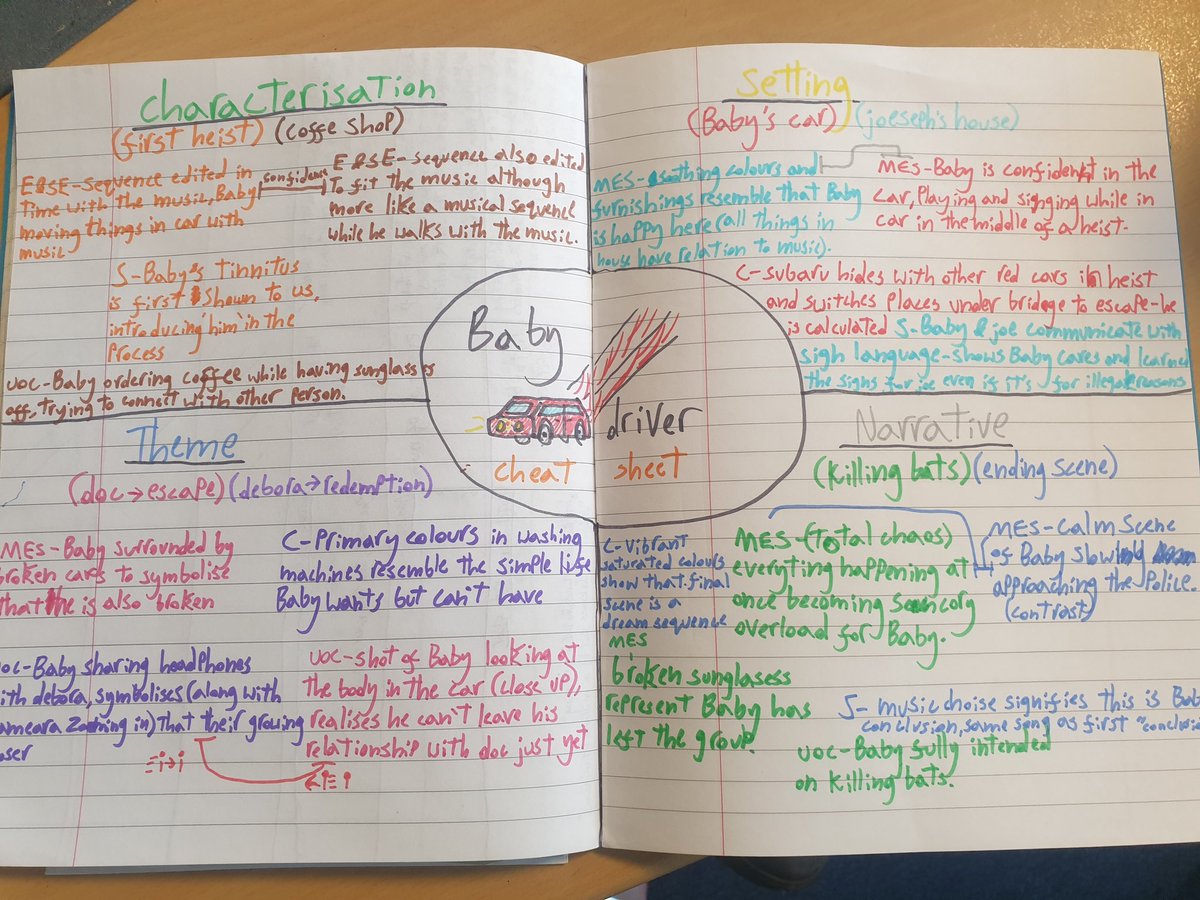 Characterisation
(first heist) (coffe shop)
E&SE-Sequence edited in
Time with the music, Baby
moving things in car with
music
confident
E&SE-sequence also edited
To fit the music although
more like a musical sequence
while he walks with the music.
S-Baby's Tinnitus
is first shown to us,
introducing 'him' in the
Process
uoc-Baby ordering coffee while having sunglasses
off, trying to connect with other person.
Setting
(Baby's car) (joeseph's house)
MES-soothing colours and
furnishings resemble that Baby
is happy here (all things in
house have relation to music).
MES-Baby is confident in the
Car, Playing and signging while in
car in the middle of a heist.
C-subaru hides with other red cars in heist
and switches places under bridge to escape-he
is calculated S-Baby & joe communicate with
sigh language-shows Baby cares and learned
the signs for joe even if it's for illegal reasons
Baby
driver
cheat sheet
Theme
(doc→escape) (debora→redemption)
MES-Baby surrounded by
broken cars to symbolise
that he is also broken
C-Primary colours in washing
machines resemble the simple life
Baby wants but can't have
uoc-Baby sharing headphones
with debora, symbolises (along with
cameara zooming in) that their growing
closer
uoc-shot of Baby looking at
the body in the car (close up),
realises he can't leave his
relationship with doc just yet
Narrative
(killing bats) (ending scene)
C-Vibrant
saturated colours
show that final
scene is a
dream sequence
MES-(Total chaos)
everyting happening at
once becoming sencory
overload for Baby.
MES-Calm Scene
of Baby slow
approaching the Police.
(contrast)
MES
broken sunglasess
represent Baby has
left the group.
S-music choise signifies this is
conclusion, same song as first
uoc-Baby fully intended
on killing bats.